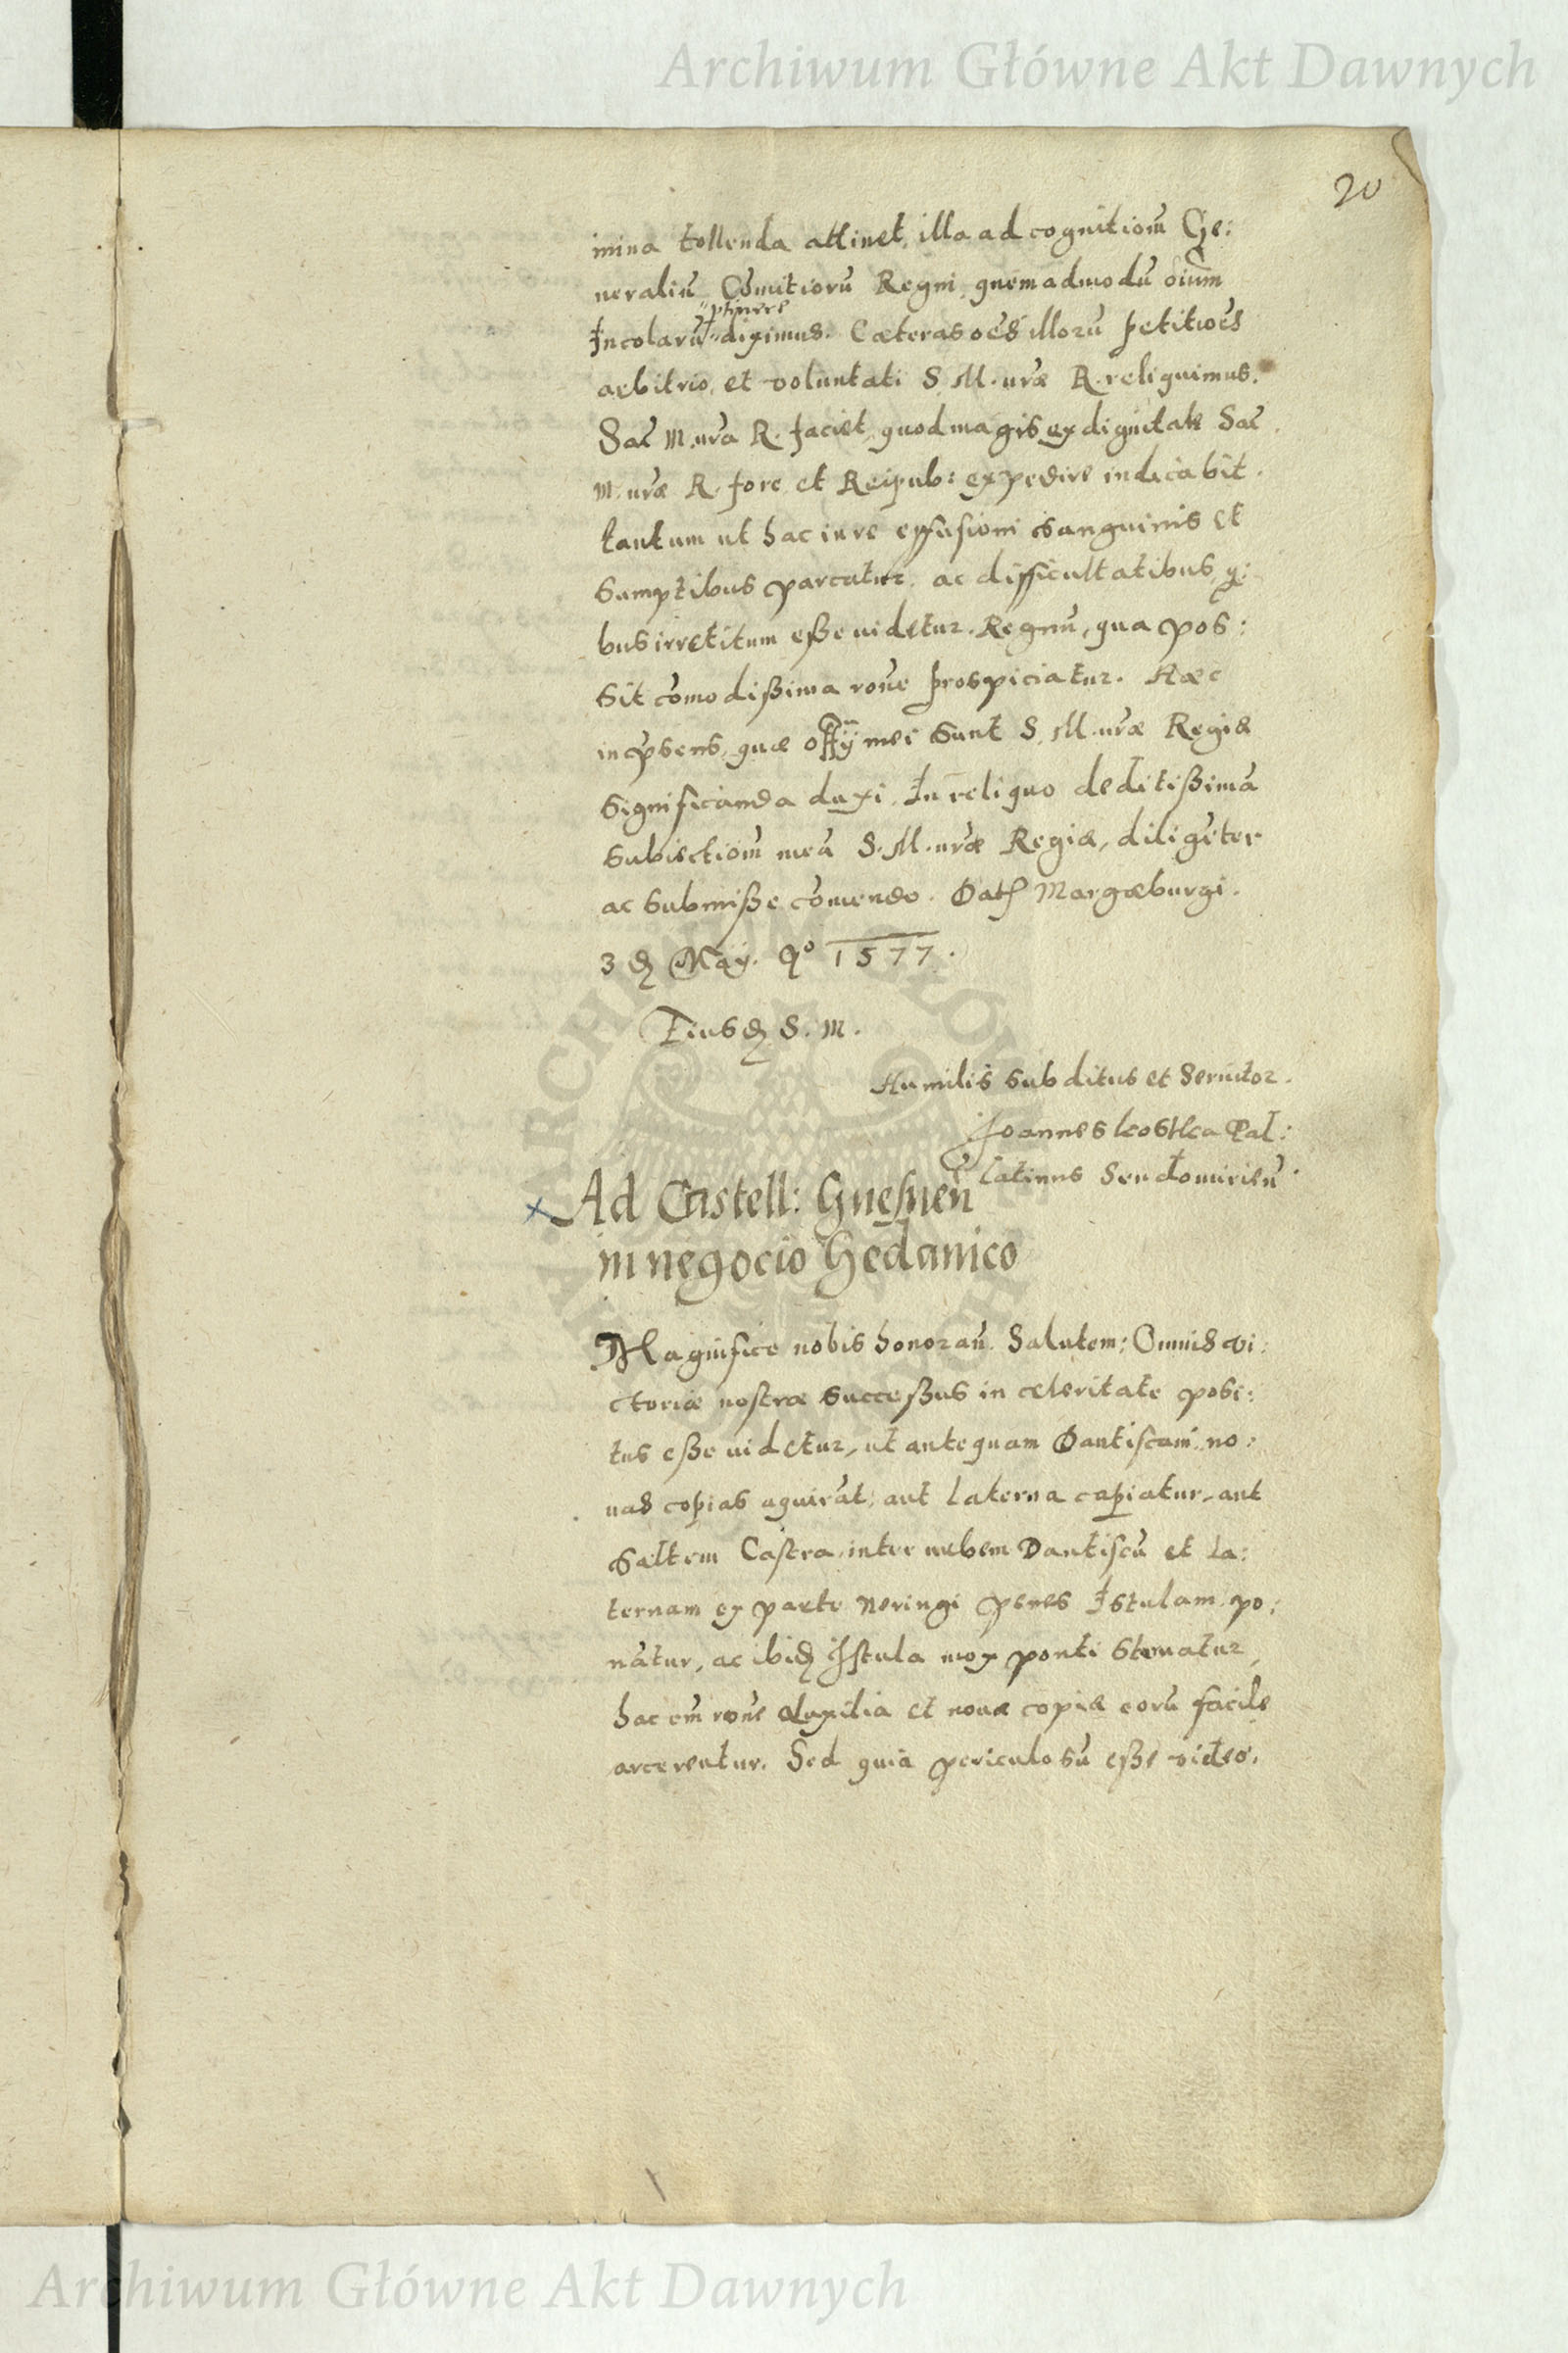 Archiwum Główne Akt Dawnych
20
mina tollenda attinet, illa ad cognitiom̃ Ge:
neraliũ Comitiorũ Regni, quemadmodũ oium̃
ptinere
Incolarũ diximus. Cæteras oẽs illorũ petitiões
arbitrio, et voluntati S. M. vræ R. reliquimus.
Sac̃ M. vra R. faciet, quod magis ex dignitate Sac̃
M. vræ R. fore et Reipub: expedire iudicabit.
tantum ut hac in re effusioni sanguinis et
sumptibus parcatur, ac difficultatibus, q:
bus irretitum eße uidetur Regnũ, qua pos:
sit cõmodißima rone prospiciatur. Hæc
in psens, quæ offÿ mei sunt S. M. vræ Regiæ
significanda duxi. In reliquo deditißimã
subiectiom̃ meã S. M. vræ Regiæ, diligẽter
ac submiße cõmendo. Dat Margæburgi.
3 d Maÿ. Aº 1577.
Eiusd S. M.
Humilis subditus et Seruitor.
Joannes Costka Pal:
latinus Sendomirien̄.
Ad Castell: Gnesnen̄
in negocio Gedanico
Magnifice nobis honoran̄. Salutem: Omnis vi:
ctoriæ nostræ succeßus in celeritate posi:
tus eße uidetur, ut antequam Dantiscani no:
uas copias aquirãt, aut Laterna capiatur, aut
Saltem Castra, inter urbem Dantiscũ et La:
ternam ex parte Neringi penes Istulam po:
nãtur, ac ibid Istula mox ponti sternatur,
hac em̃ rone Auxilia et nouæ copiæ eorũ facile
arcerentur. Sed quia periculosũ eße video.
Archiwum Główne Akt Dawnych